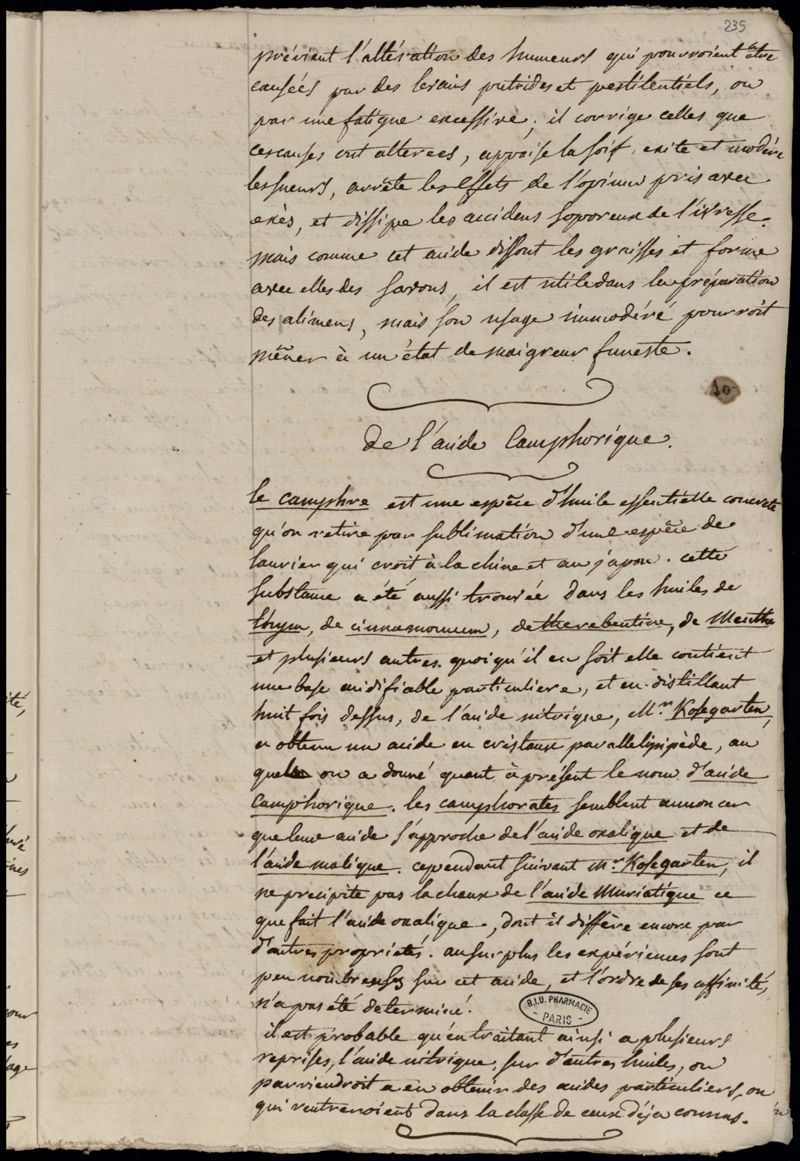 235
prévient l'altération des humeurs qui pourroient être
causées par des levains putrides et pestilentiels, ou
par une fatigue excessive, il corrige celles que
ces causes ont alterées, appaise la soif, exite et modère
les sueurs, arrête les effets de l'opium pris avec
exès, et dissipe les accidens soporeux de l'ivresse.
mais comme cet acide dissout les graisses et forme
avec elles des savons, il est utile dans la préparation
des alimens, mais son usage immodéré pourroit
mêner à un état de maigreur funeste.
10
De l'acide Camphorique.
le camphre est une espèce d'huile essentielle concrete
qu'on retire par sublimation d'une espèce de
laurier qui croit à la chine et au japon. cette
substance a été aussi trouvée dans les huiles de
thym, de cinnamomum, de therebentine, de Menthe
et plusieurs autres. quoiqu'il en soit elle contient
une base acidifiable particuliere, et en distillant
huit fois dessus, de l'acide nitrique, Mr. Kosegarten,
a obtenu un acide en cristaux parallelipipède, au
quel on a donné quant à présent le nom d'acide
Camphorique. les camphorates semblent annoncer
que leur acide s'approche de l'acide oxalique et de
l'acide malique. cependant suivant Mr. Kosegarten, il
ne precipite pas la chaux de l'acide Muriatique ce
que fait l'acide oxalique, dont il diffère encore par
d'autres propriétés. au surplus les expériences sont
peu nombreuses sur cet acide, et l'ordre de ses affinités,
n'a pas été determiné.
B.I.U. PHARMACIE
PARIS
il est probable qu'en traitant ainsi a plusieurs
reprises, l'acide nitrique sur d'autres huiles, on
parviendroit a en obtenir des acides particuliers, ou
qui rentreroient dans la classe de ceux déja connus.